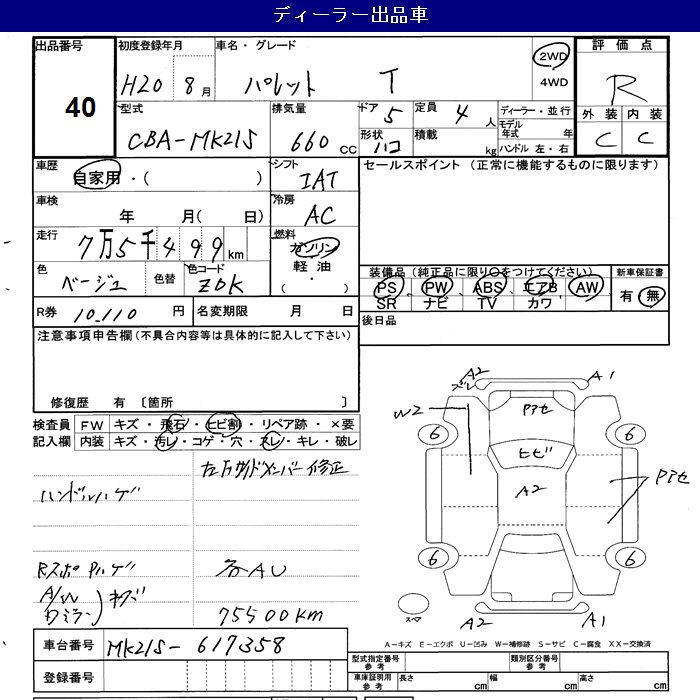 ディーラー出品車
出品番号
40
初度登録年月
H20 8月
車名・グレード
パレット T
2WD
4WD
評価点
R
外装 内装
C C
型式
CBA-MK21S
排気量
660 CC
ドア 5
形状 ハコ
定員 4人
積載 kg
ディーラー・並行
モデル年式 年
ハンドル 左・右
車歴
自家用・( )
シフト
IAT
セールスポイント (正常に機能するものに限ります)
車検
年 月( 日)
冷房
AC
走行
7万5千499km
燃料
ガソリン
軽油
・
色
ベージュ
色替
色コード
ZDK
装備品(純正品に限り○をつけてください)
PS PW ABS エアB AW
SR ナビ TV カワ
新車保証書
有・無
R券 10,110 円
名変期限 月 日
後日品
注意事項申告欄(不具合内容等は具体的に記入して下さい)
修復歴 有 〔箇所 〕
検査員記入欄
FW キズ・飛石・ヒビ割・リペア跡・×要
内装 キズ・汚レ・コゲ・穴・スレ・キレ・破レ
左右サイドメンバー修正
ハンドルハゲ
RスポPハゲ
A/W
Dミラー)キズ
各AU
75500km
A2
ズレ
A1
W2
Pアセ
6
6
ヒビ
A2
Pアセ
6
6
スペア
A2
A1
A－キズ E－エクボ U－凹み W－補修跡 S－サビ C－腐食 XX－交換済
車台番号 MK21S-617358
登録番号
型式指定番号 参考
類別区分番号 参考
車庫証明用 参考
長さ cm
幅 cm
高さ cm